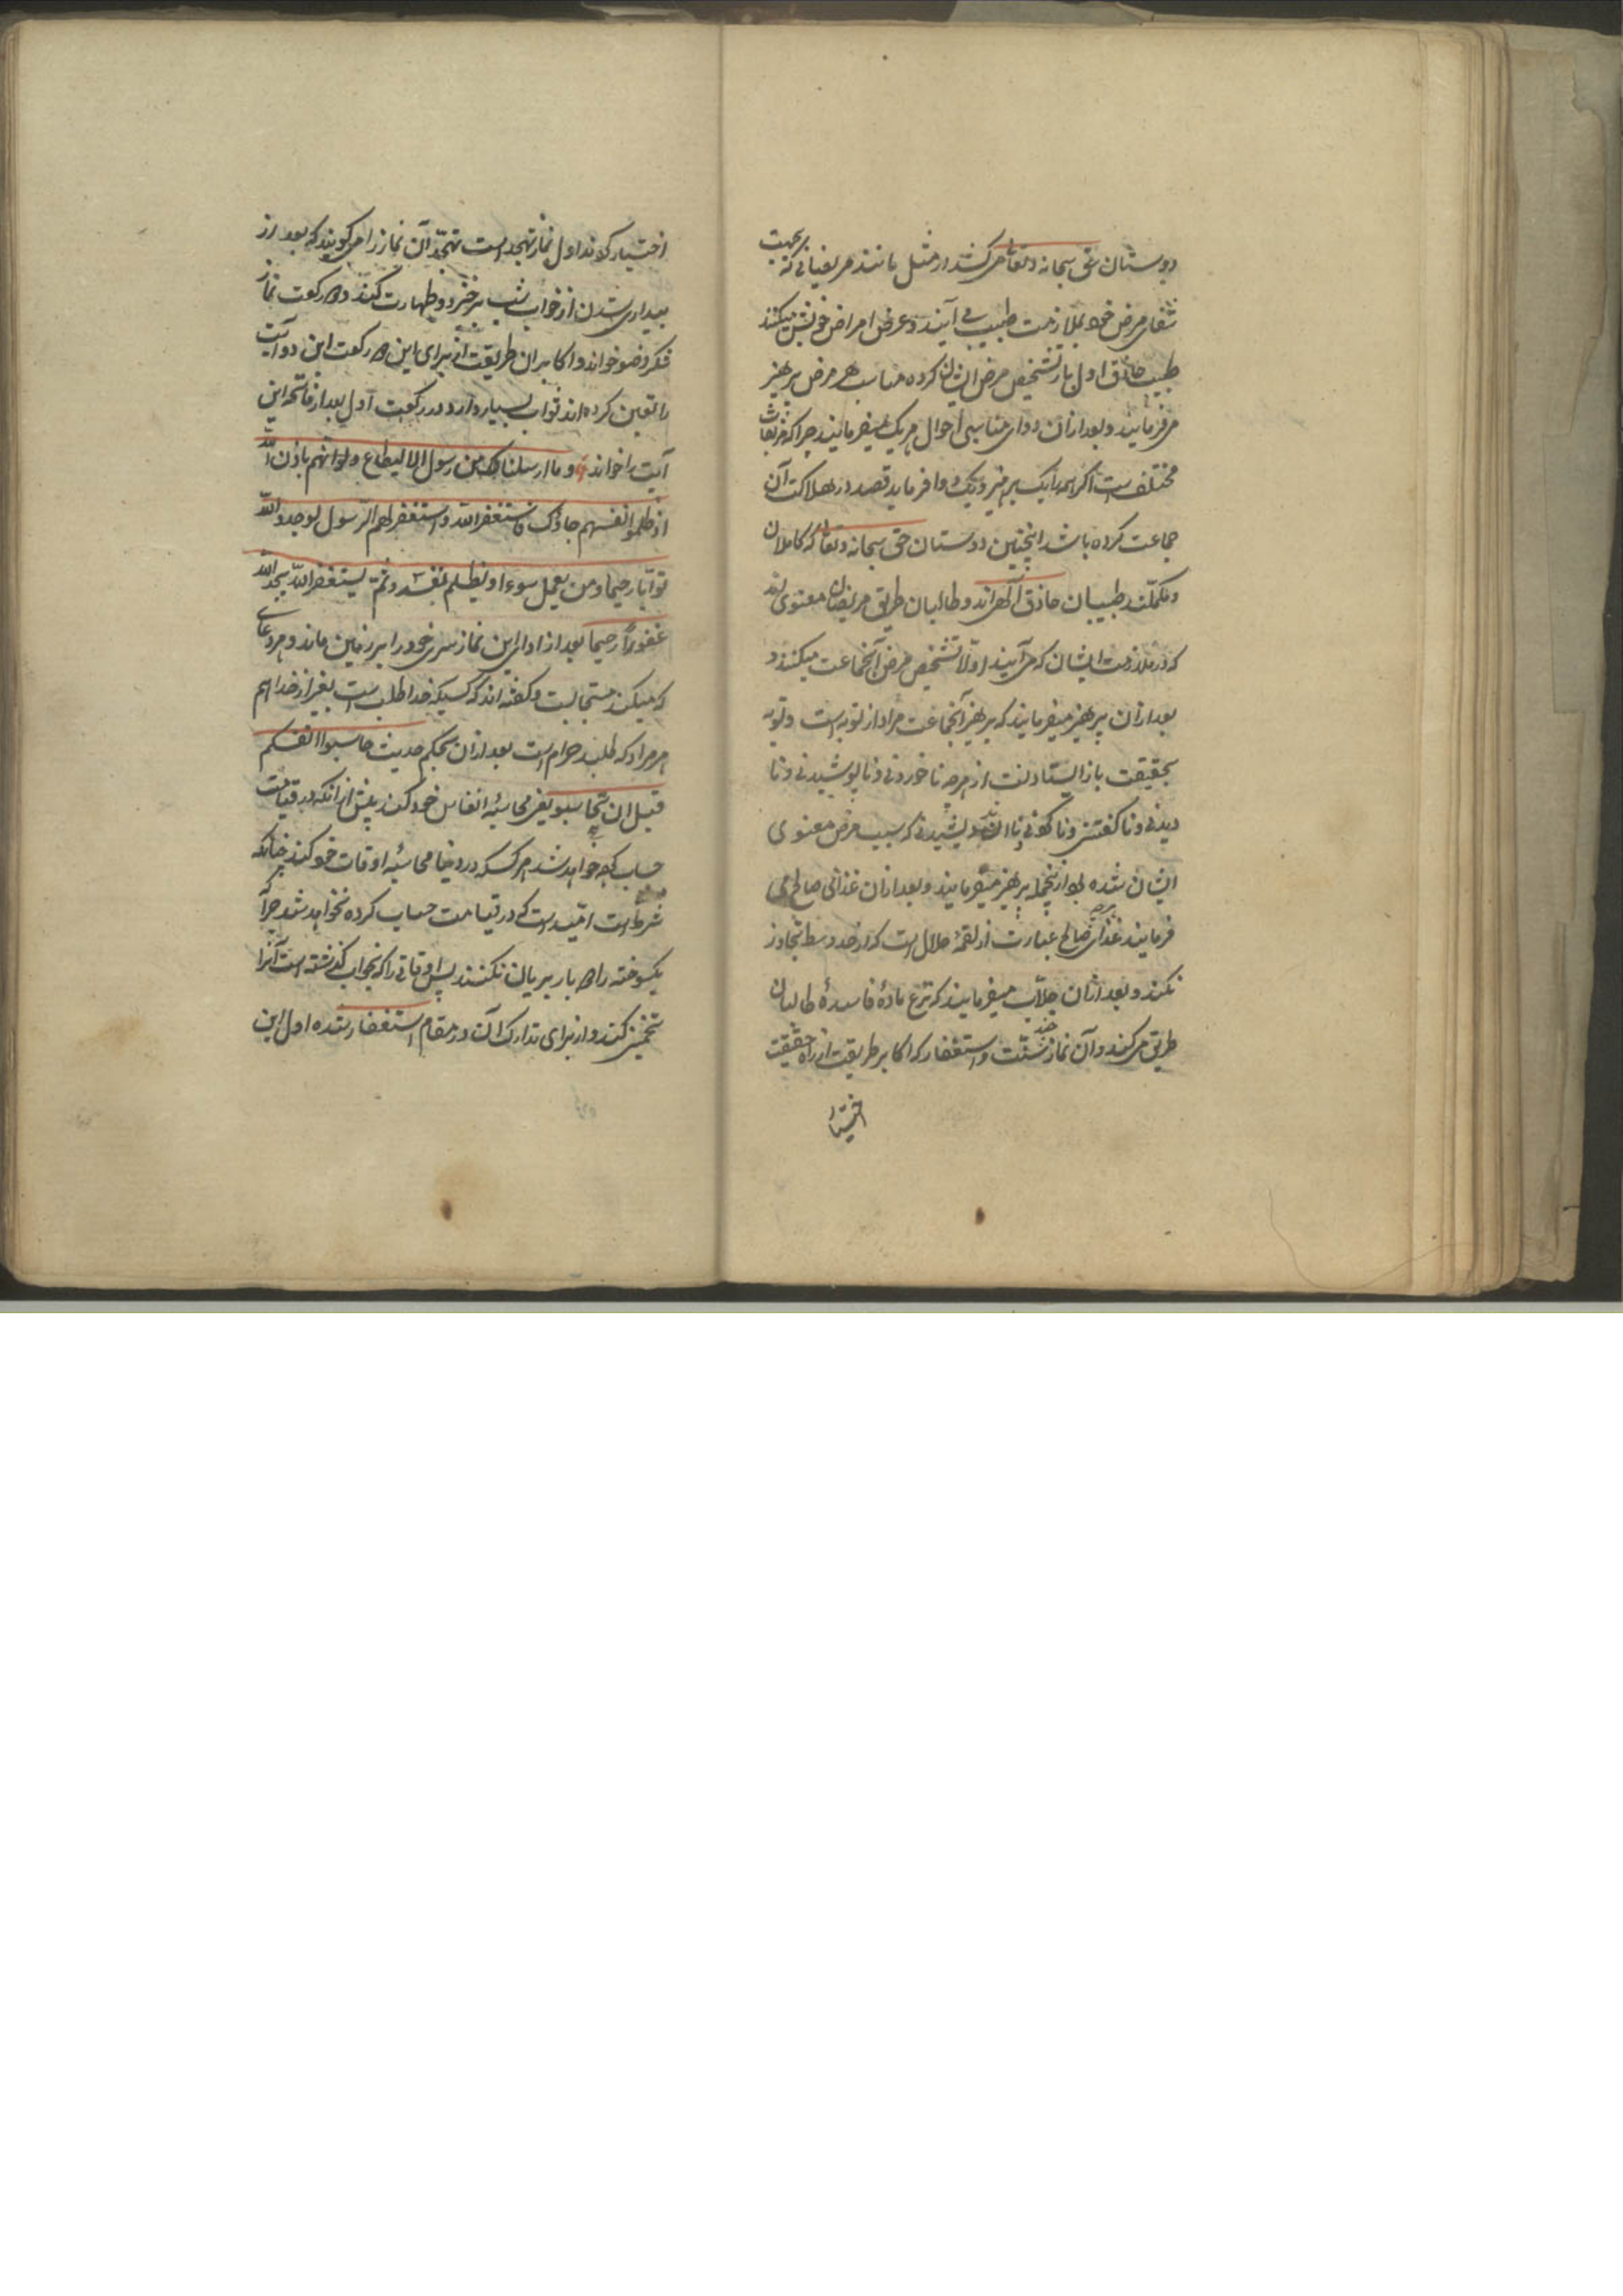 دوستان حق سبحانه و تعالی می کنند از مثل مانند مریضانی که بجهت
شفای مرض خود بملازمت طبیب می آیند و عرض امراض خویش میکنند
طبیب حاذق اول بار تشخیص مرض ایشان کرده مناسب هر مرض پرهیز
می فرمایند و بعد ازان دوای مناسب احوال هر یک میفرمایند چرا که مرضهاشان
مختلف است اگر همه را یک پرهیز و یک دوا فرماید قصد در هلاکت آن
جماعت کرده باشد اینچنین دوستان حق سبحانه و تعالی که کاملان
و مکملند طبیبان حاذق الهی اند و طالبان طریق مریضان معنوی اند
که در ملازمت ایشان که می آیند اولا تشخیص مرض آنجماعت میکنند و
بعد ازان پرهیز میفرمایند که پرهیز آنجماعت مراد از توبه است و توبه
بحقیقت باز ایستادنست از هر چه ناخوردنی و ناپوشیدنی و نا
دیدنی و ناگفتنی و ناکردنی و نااندیشیدنی که سبب مرض معنوی
ایشان شده بود ازینجمله پرهیز میفرمایند و بعد ازان غذائی صالح می
فرمایند غذای صالح عبارت از لقمهٔ حلال است که از حد وسط تجاوز
نکند و بعد ازان جلاب میفرمایند که نزع مادهٔ فاسدهٔ طالبان
طریق می کند و آن نماز چند سنت و استغفار که اکابر طریقت از راه حقیقت
اختیار
اختیار کرده اند اول نماز تهجد است تهجد آن نماز را می گویند که بعد از
بیدار شدن از خواب شب برخیزد و طهارت کند و دو رکعت نماز
شکر وضو خواند و اکابران طریقت از برای این دو رکعت این دو آیت
را تعین کرده اند ثواب بسیار دارد در رکعت اول بعد از فاتحه این
آیت را خواند و ما ارسلناک من رسول الا لیطاع و لو انهم باذن الله
اذ ظلموا انفسهم جاؤک فاستغفر الله و استغفر لهم الرسول لوجدوا الله
توابا رحیما و من یعمل سوءا او یظلم نفسه و ثم یستغفر الله یجد الله
غفورا رحیما بعد از ادای این نماز سری خود را بر زمین ماند و هر دعای
که میکند مستجابست و گفته اند که کسیکه خدا طلب است بغیر از خدا هم
هر مراد که طلبد حرام است بعد ازان بحکم حدیث حاسبوا انفسکم
قبل ان تحاسبو یعنی محاسبهٔ انفاس خود کند پیش ازانکه در قیامت
حساب کرده خواهد شد هر کسکه در دنیا محاسبهٔ اوقات خود کند چنانکه
شرط است امید است که در قیامت حساب کرده نخواهد شد چرا
یکسوخته را دو بار بریان نکنند پس اوقاتی را که بخواب گذشته است آنرا
تخمین کند و از برای تدارک آن در مقام استغفار شده اول این